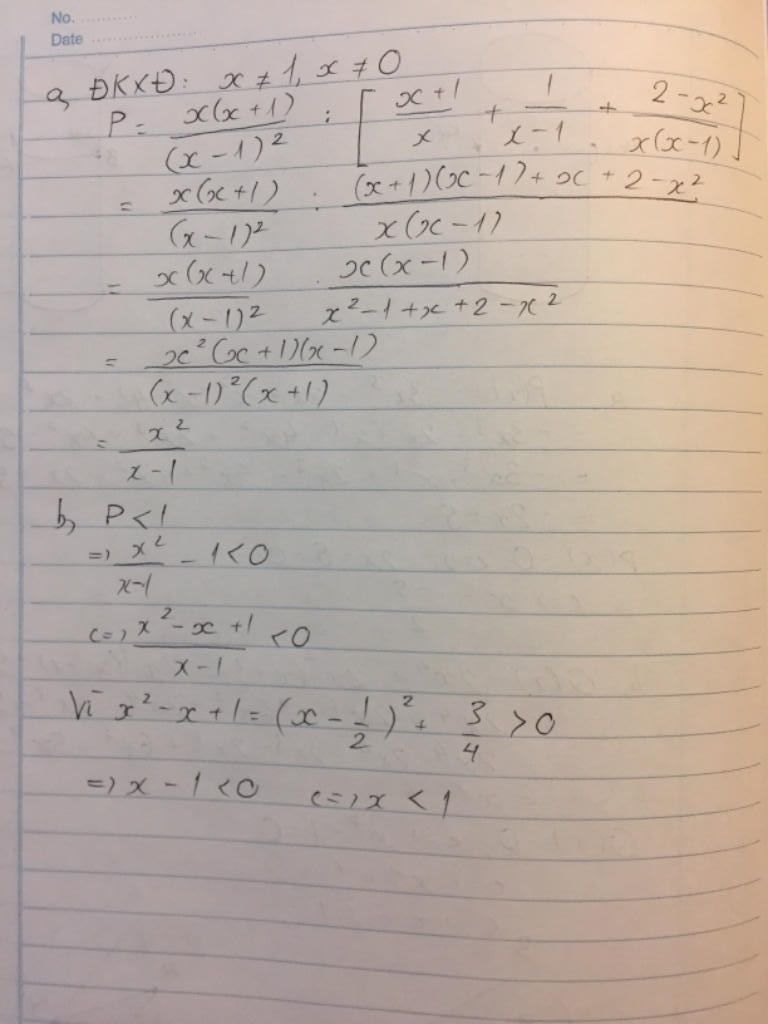 No. ..............
Date ..................
a, ĐKXĐ: x ≠ 1, x ≠ 0
P = x(x+1)/(x-1)² : [(x+1)/x + 1/(x-1) + (2-x²)/(x(x-1))]
= x(x+1)/(x-1)² : ((x+1)(x-1)+x+2-x²)/(x(x-1))
= x(x+1)/(x-1)² . x(x-1)/(x²-1+x+2-x²)
= x²(x+1)(x-1)/((x-1)²(x+1))
= x²/(x-1)
b, P < 1
=> x²/(x-1) - 1 < 0
<=> (x²-x+1)/(x-1) < 0
Vì x²-x+1 = (x - 1/2)² + 3/4 > 0
=> x - 1 < 0 <=> x < 1